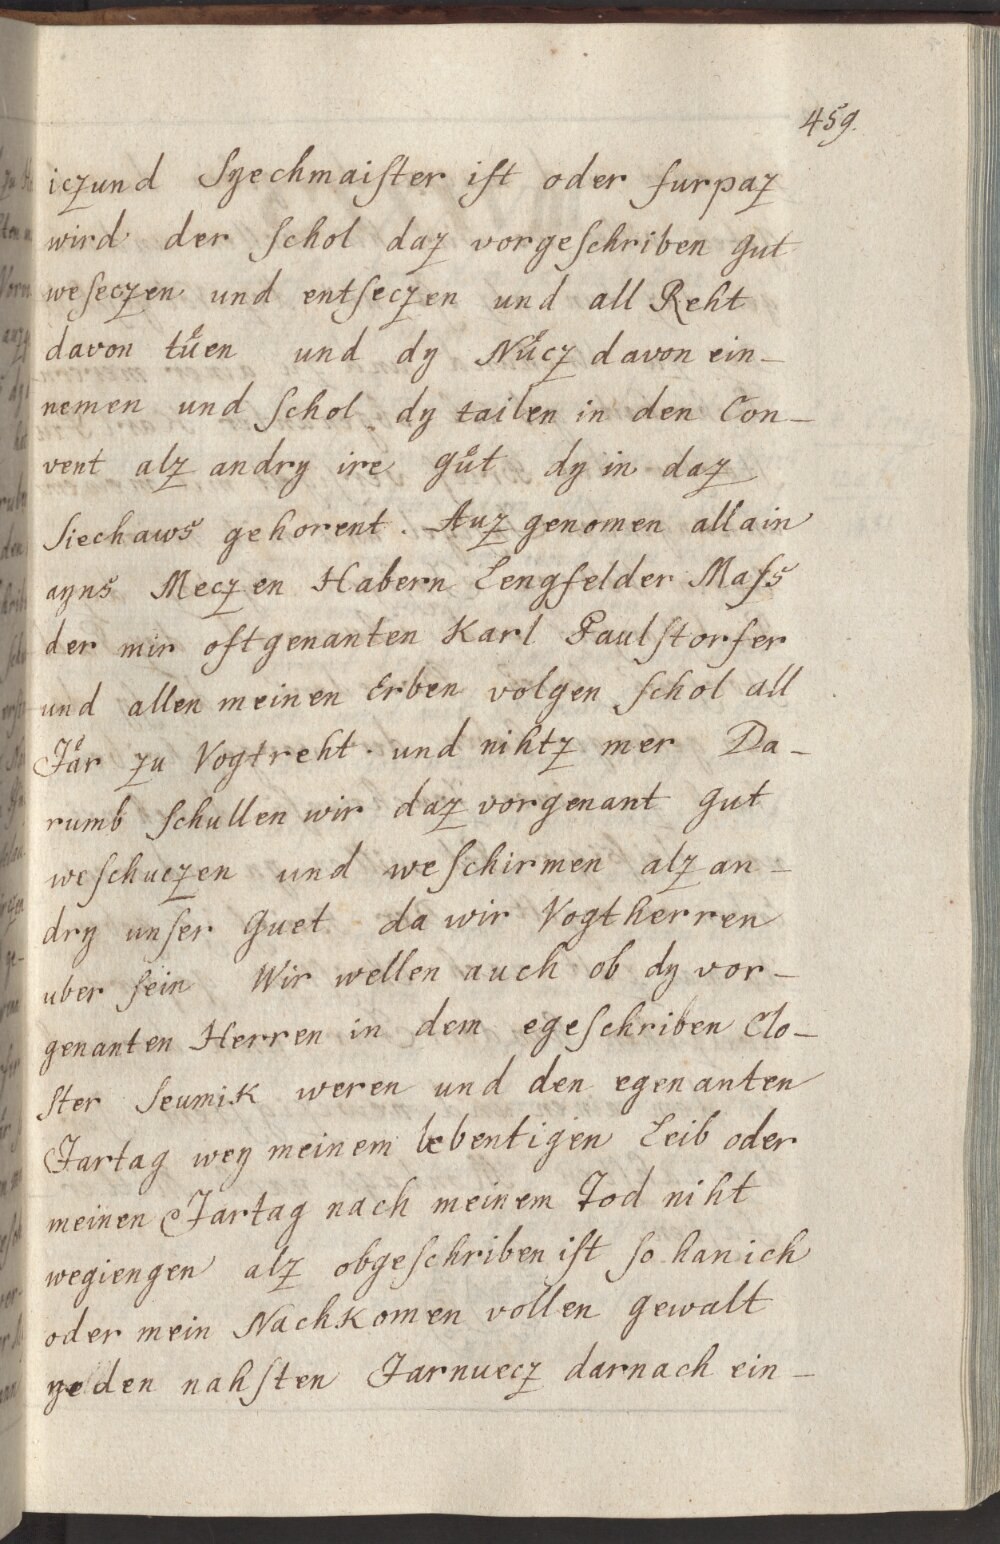 459.
iczund Syechmaister ist oder furpaz
wird der schol daz vorgeschriben gut
weseczen und entseczen und all Reht
davon tuͤen und dy Nuͤcz davon ein-
nemen und schol dy tailen in den Con-
vent alz andry ire guͤt dy in daz
Siechaws gehorent. Auz genomen allain
ayns Meczen Habern Lengfelder Mass
der mir oftgenanten Karl Paulstorfer
und allen meinen Erben volgen schol all
Jaͤr zu Vogtreht. und nihtz mer Da-
rumb schullen wir daz vorgenant gut
weschuczen und weschirmen alz an-
dry unser Guet da wir Vogtherren
uber sein Wir wellen auch ob dy vor-
genanten Herren in dem egeschriben Clo-
ster Seumik weren und den egenanten
Jartag wey meinem lebentigen Leib oder
meinen Jartag nach meinem Tod niht
wegiengen alz obgeschriben ist so han ich
oder mein Nachkomen vollen gewalt
den nahsten Jarnuecz darnach ein-